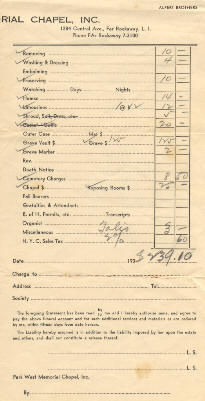 ALPERT BROTHERS
RIAL CHAPEL, INC.
1284 Central Ave., Far Rockaway, L. I.
Phone FAr Rockaway 7-3100
Removing 10 —
Washing & Dressing 4 —
Embalming
Preserving 10 —
Watching Days Nights
Hearse 14 —
Limousines 12 —
Shroud, Suit, Dress, etc. 5 —
20 —
Outer Case
Grave Vault $ Grave $ 125 125 —
Grave Marker 2 —
Rev.
Death Notice
Cemetery Charges 8 50
Chapel $ Reposing Rooms $ 25 —
Pall Bearers
Gratuities & Attendants
B. of H. Permits, etc. Transcripts
Organist
Miscellaneous Talis 3 —
N. Y. C. Sales Tax 2% 60
Date 193 $239.10
Charge to
Address Tel.
Society
The foregoing Statement has been read by me and I hereby authorize same, and agree to
pay the above funeral account and for such additional services and materials as are ordered
by me, within fifteen days from date hereof.
The Liability hereby assumed is in addition to the liability imposed by law upon the estate
and others, and shall not constitute a release thereof.
L. S.
L. S.
Park West Memorial Chapel, Inc.
By